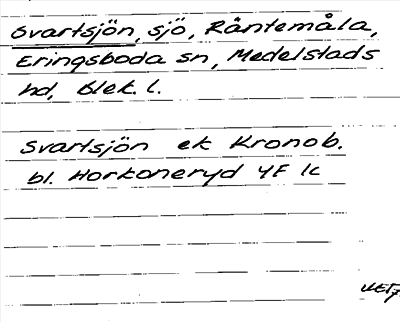 Svartsjön, sjö, Råntemåla,
Eringsboda sn, Medelstads
hd, Blek. l.
Svartsjön ek Kronob.
bl. Horkoneryd 4F 1c